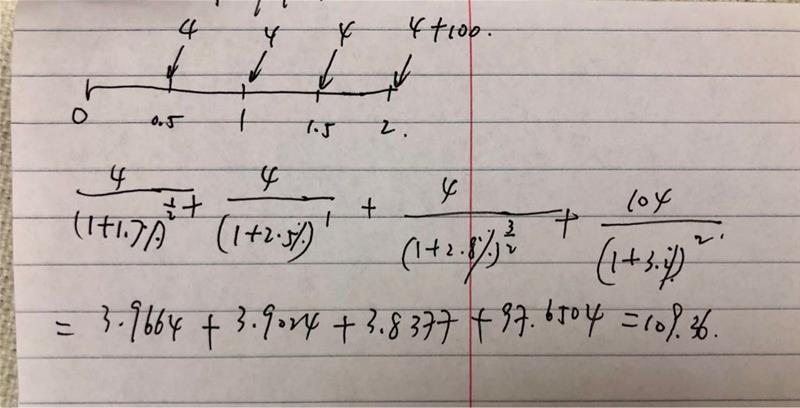 4 4 4 4+100.
0 0.5 1 1.5 2.
4/(1+1.7%)^{1/2} + 4/(1+2.5%)^1 + 4/(1+2.8%)^{3/2} + 104/(1+3.2%)^2
= 3.9664 + 3.9024 + 3.8377 + 97.6504 = 109.36.